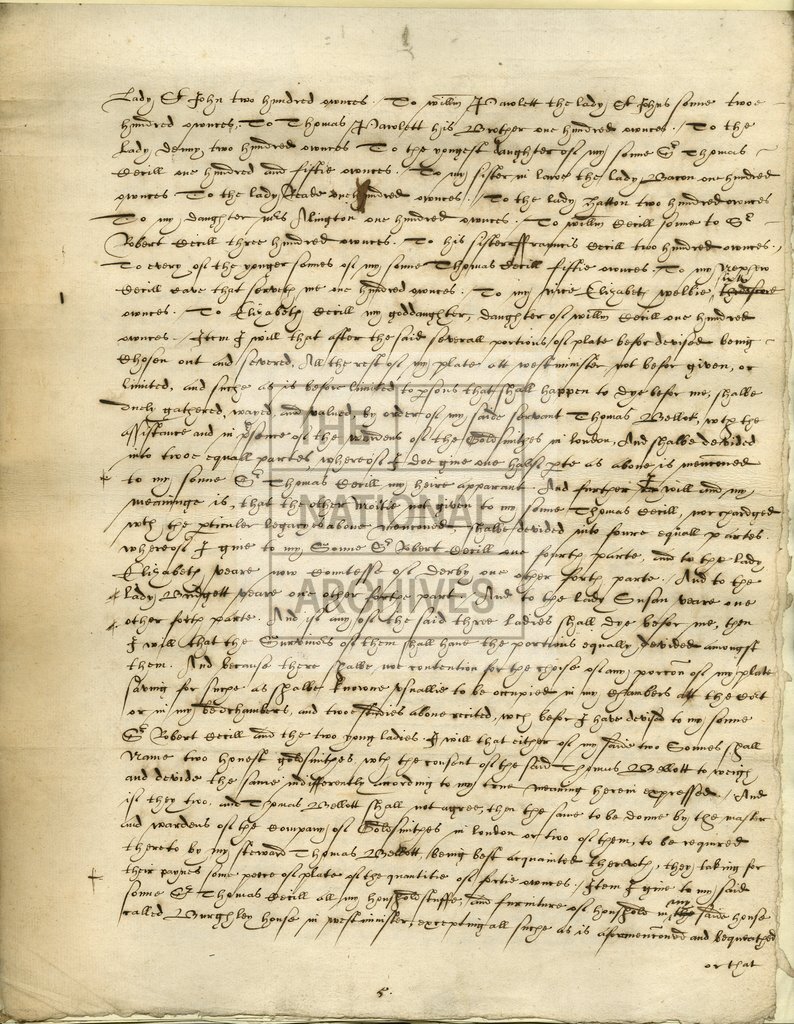 Lady St John two hundred ownces. To willm Pawlett the lady St Johns sonne twoe
hundred ownces, To Thomas Pawlett his Brother one hundred ownces. To the
Lady denny two hundred ownces To the yongest daughter of my sonne Sr Thomas
Cecill one hundred and fiftie ownces. To my sister in lawe the lady Bacon one hundred
ownces To the lady Reade one hundred ownces. To the lady Hatton two hundred ownces
To my daughter mrs Alington one hundred ownces. To willm Cecill sonne to Sr
Robert Cecill three hundred ownces. To his sister ffrauncis Cecill two hundred ownces.
To every of the yonger sonnes of my sonne Thomas Cecill fiftie ownces. To my
Cecill that serveth me one hundred ownces. To my niece Elizabeth
ownces. To Elizabeth Cecill my goddaughter, daughter of willm Cecill one hundred
ownces. Item I will that after the said severall portions of plate befor devised being
chosen out and severed, All the rest of my plate att westminister not befor given, or
limited, and suche as is before limited to psons that shall happen to dye befor me, shalbe
duely gathered, wayed, and valued by order of my saide servant Thomas Bellot, wth the
assistance and in psence of the wardens of the Goldsmithes in london, And shalbe devided
into twoe equall partes, whereof I doe give one halfe pte as above is mencioned
to my sonne Sr Thomas Cecill my heire apparant. And further will and my
meaninge is, that the other moitie not given to my sonne Thomas Cecill, nor chardged
wth the pticuler legacies above mencioned, shalbe devided into foure equall partes.
whereof I give to my Sonne Sr Robert Cecill one fourth parte, and to the lady
Elizabeth veare now Countesse of derby one other forth parte. And to the
lady Bridgett veare one other forthe part. And to the lady Susan veare one
other forth parte. And if any of the said three ladies shall dye befor me, then
I will that the Survivors of them shall have the portions equally devided amongst
them. And because there shalbe noe contention for the choise of any porcon of my plate
saving for suche as shalbe knowne vsuallie to be occupied in my Chambers att the Cort
or in my bedchambers, and twoe studies above recited, wch befor I have devised to my sonne
Sr Robert Cecill and the two yong ladies. I will that either of my saide two Sonnes shall
name two honest goldsmithes, wth the consent of the said Thomas Bellott to weigh
and devide the same indifferently according to my true meaning herein expressed. And
if they two, and Thomas Bellott shall not agree, then the same to be donne by the master
and wardens of the Company of Goldsmithes in london or two of them, to be required
thereto by my steward Thomas Bellott, being best acquainted therewth, they taking for
their paynes some peece of plate of the quantitie of fortie ownces. Item I give to my said
sonne Sr Thomas Cecill all my housholdstuffe, and furniture of houshold in my saide house
called Burghley house in westminister, excepting all suche as is aforemencioned and bequeathed
or that
5.
THE
NATIONAL
ARCHIVES